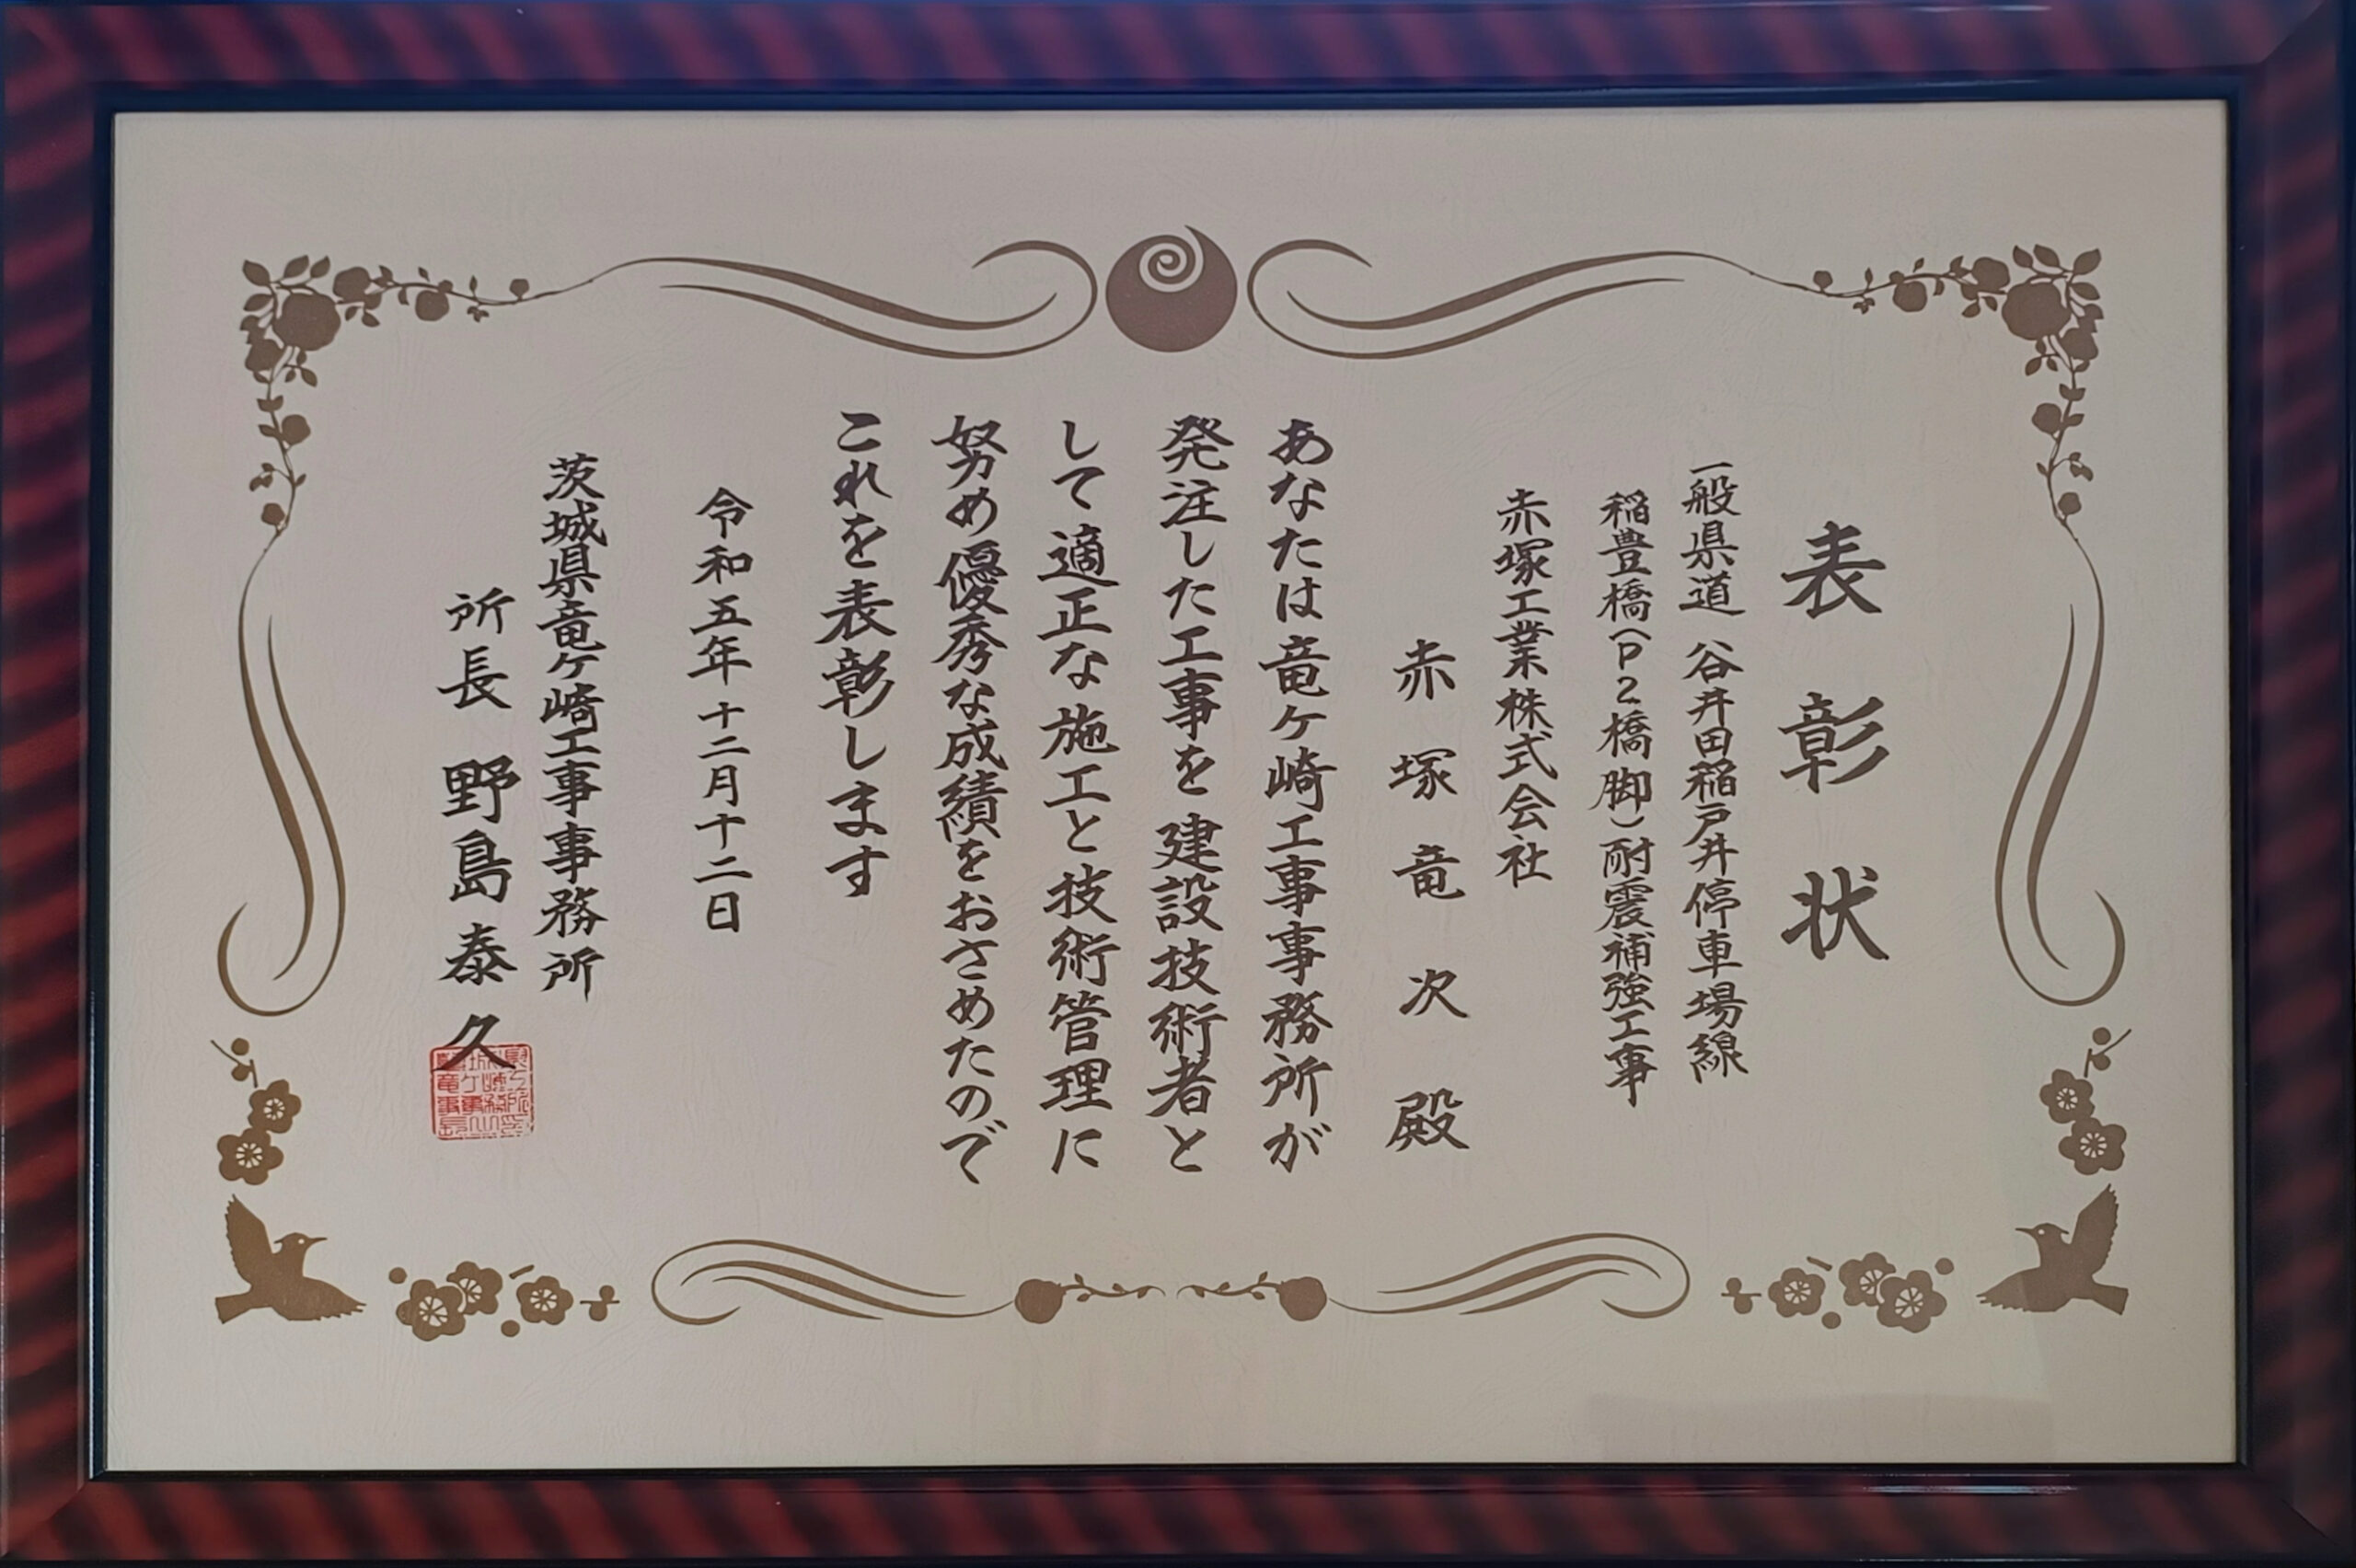 表彰状
一般県道 谷井田稲戸井停車場線
稲豊橋(P2橋脚)耐震補強工事
赤塚工業株式会社
赤塚竜次殿
あなたは竜ケ崎工事事務所が
発注した工事を建設技術者と
して適正な施工と技術管理に
努め優秀な成績をおさめたので
これを表彰します
令和五年十二月十二日
茨城県竜ケ崎工事事務所
所長 野島泰久